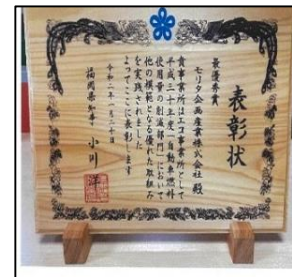 表彰状
最優秀賞
モリタ企画産業株式会社 殿
貴事業所はエコ事業所として
平成三十年度「自動車燃料
使用量の削減部門」において
他の模範となる優れた取組み
を実践されました
よってここに表彰します
令和二年一月二十日
福岡県知事 小川 洋